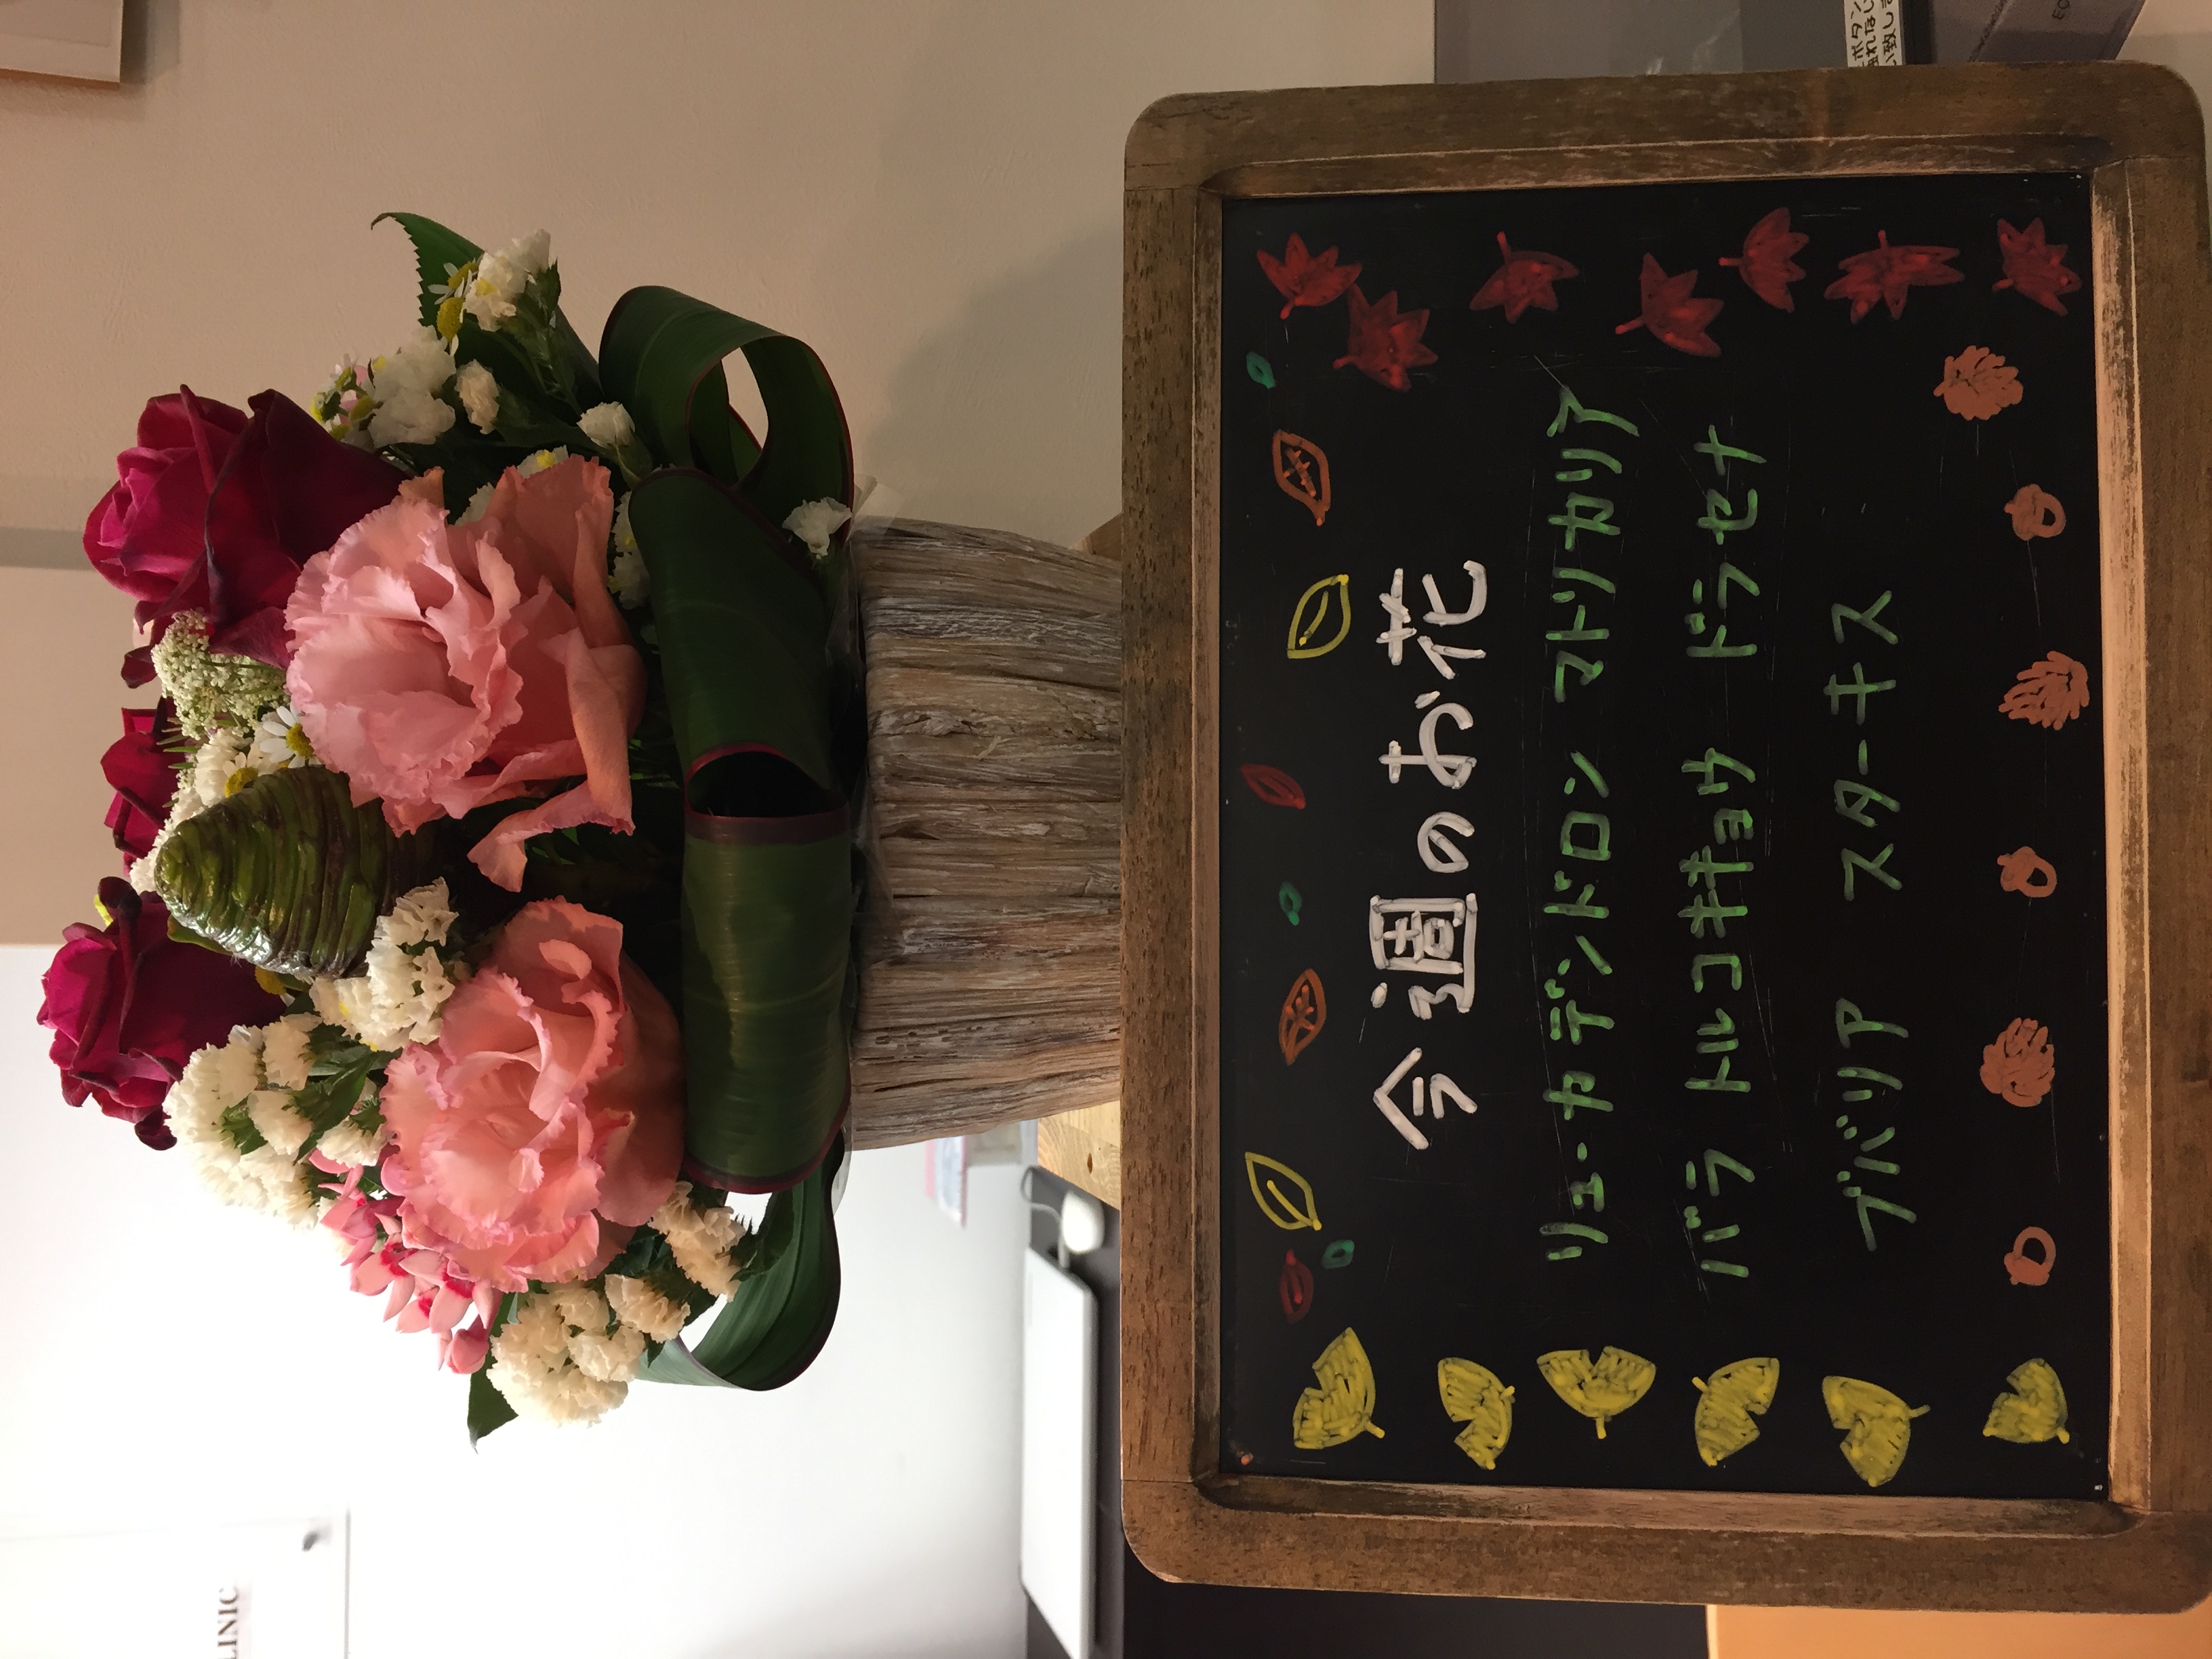 今週のお花
リューカデンドロン マトリカリア
バラ トルコキキョウ ドラセナ
ブバリア スターキス
LINIC